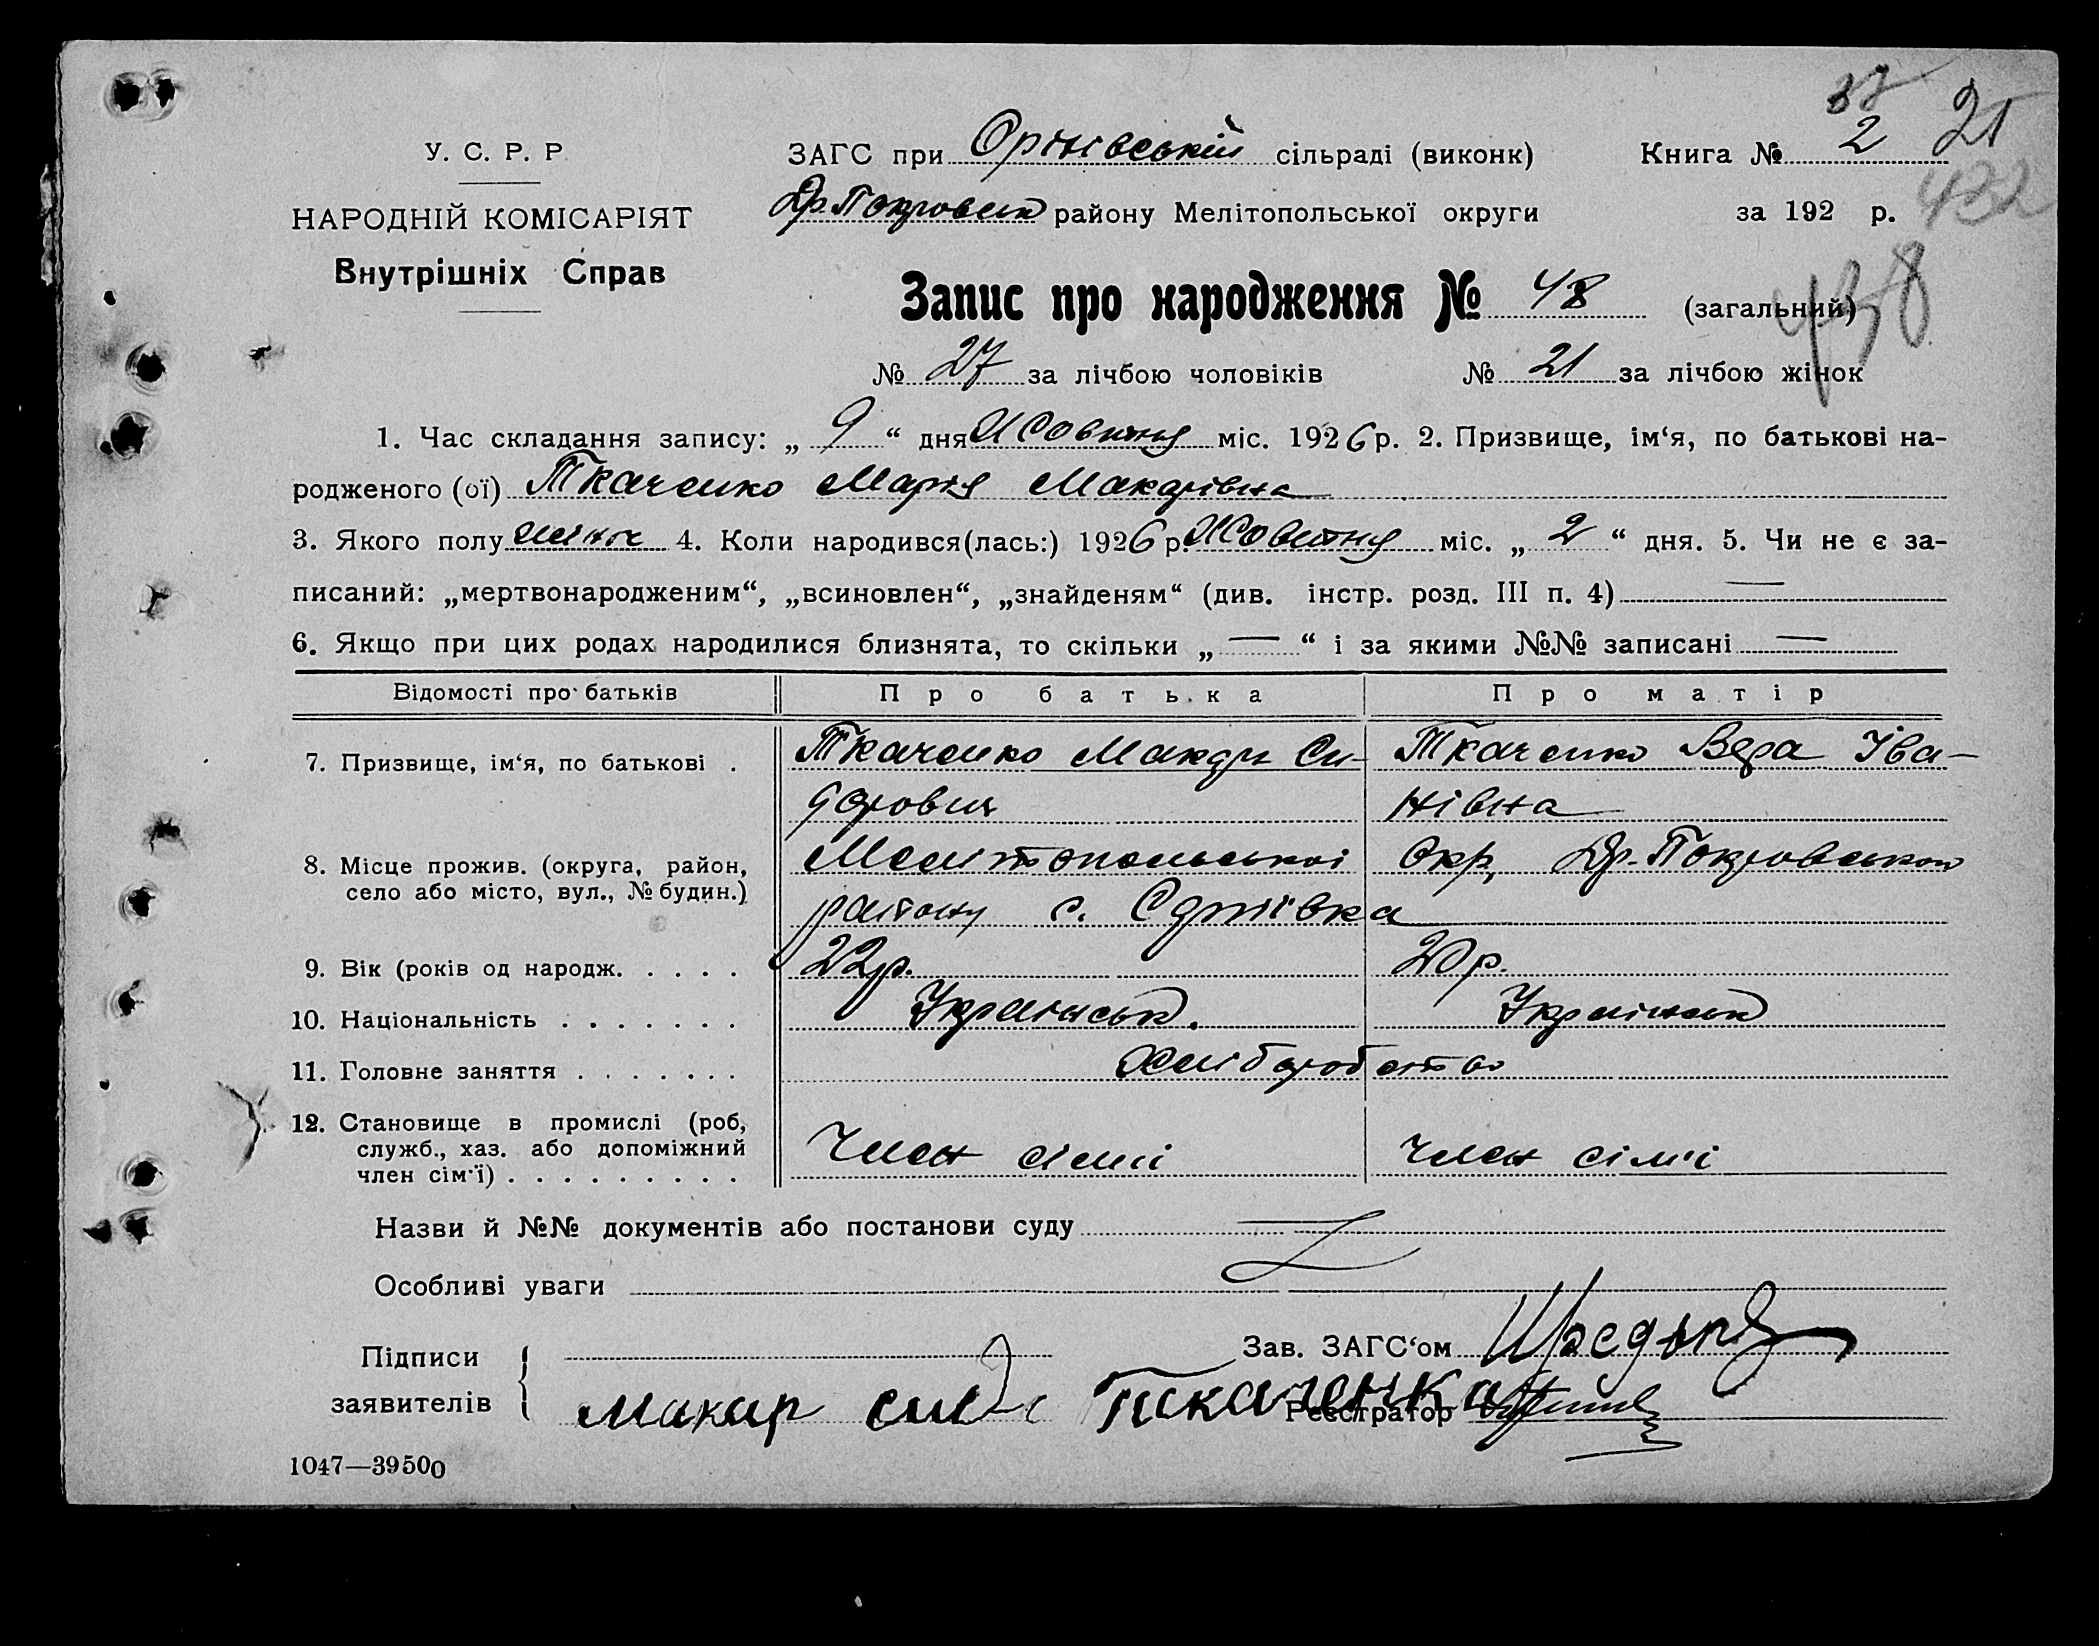 37
21
У. С. Р. Р.
ЗАГС при Орінівській сільраді (виконк) Книга № 2
432
НАРОДНІЙ КОМІСАРІЯТ
Др.Покровськ району Мелітопольської округи за 192 р.
Внутрішніх Справ
Запис про народження № 48 (загальний)
438
№ 27 за лічбою чоловіків № 21 за лічбою жінок
1. Час складання запису: „ 9 “ дня Жовтня міс. 1926 р. 2. Призвище, ім‘я, по батькові на-
родженого (ої) Ткаченко Марія Макарівна
3. Якого полу жіноч 4. Коли народився(лась:) 1926 р. Жовтня міс. „ 2 “ дня. 5. Чи не є за-
писаний: „мертвонародженим“, „всиновлен“, „знайденям“ (див. інстр. розд. III п. 4) —
6. Якщо при цих родах народилися близнята, то скільки „ — “ і за якими №№ записані —
Відомості про батьків Про батька Про матір
7. Призвище, ім‘я, по батькові . Ткаченко Макар Си- Ткаченко Вера Іва-
дорович нівна
8. Місце прожив. (округа, район, Мелітопольської Окр, Др.-Покровського
село або місто, вул., № будин.)
району с.
9. Вік (років од народж. . . . . 22р. 20р.
10. Національність . . . . . . . Українськ. Українськ
11. Головне заняття . . . . . . . Хліборобство
12. Становище в промислі (роб,
служб., хаз. або допоміжний Член сімї член сім'ї
член сім'ї) . . . . . . . . .
Назви й №№ документів або постанови суду
Особливі уваги
Зав. ЗАГС‘ом
Підписи
заявителів Макар Сид Ткаченка
Реєстратор
1047—39500